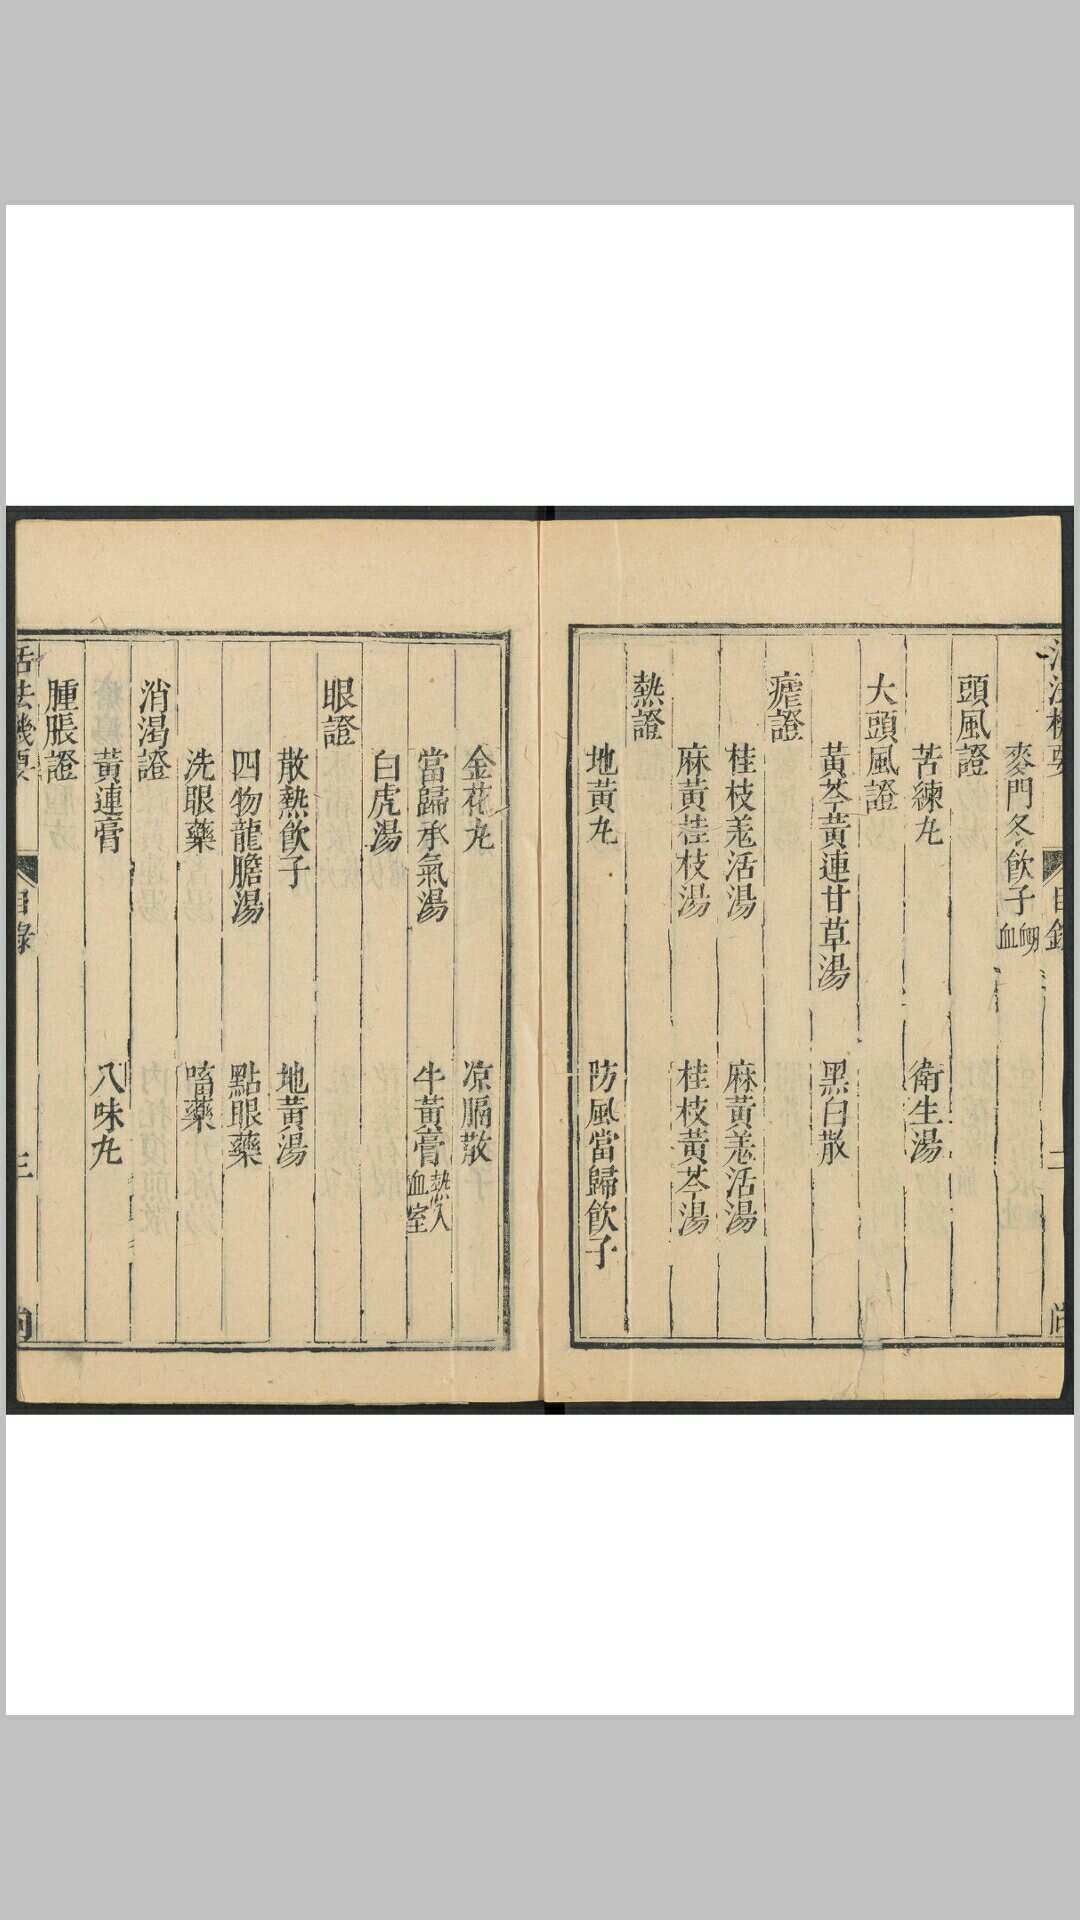 活法機要 目錄 二
麥門冬飲子 衂血
頭風證
苦練丸 衛生湯
大頭風證
黃芩黃連甘草湯 黑白散
瘧證
桂枝羗活湯 麻黃羗活湯
麻黃桂枝湯 桂枝黃芩湯
熱證
地黃丸 防風當歸飲子
金花丸 凉膈散
當歸承氣湯 牛黃膏 熱入血室
白虎湯
眼證
散熱飲子 地黃湯
四物龍膽湯 點眼藥
洗眼藥 㗜藥
消渴證
黃連膏 八味丸
腫脹證
活法機要 目錄 三